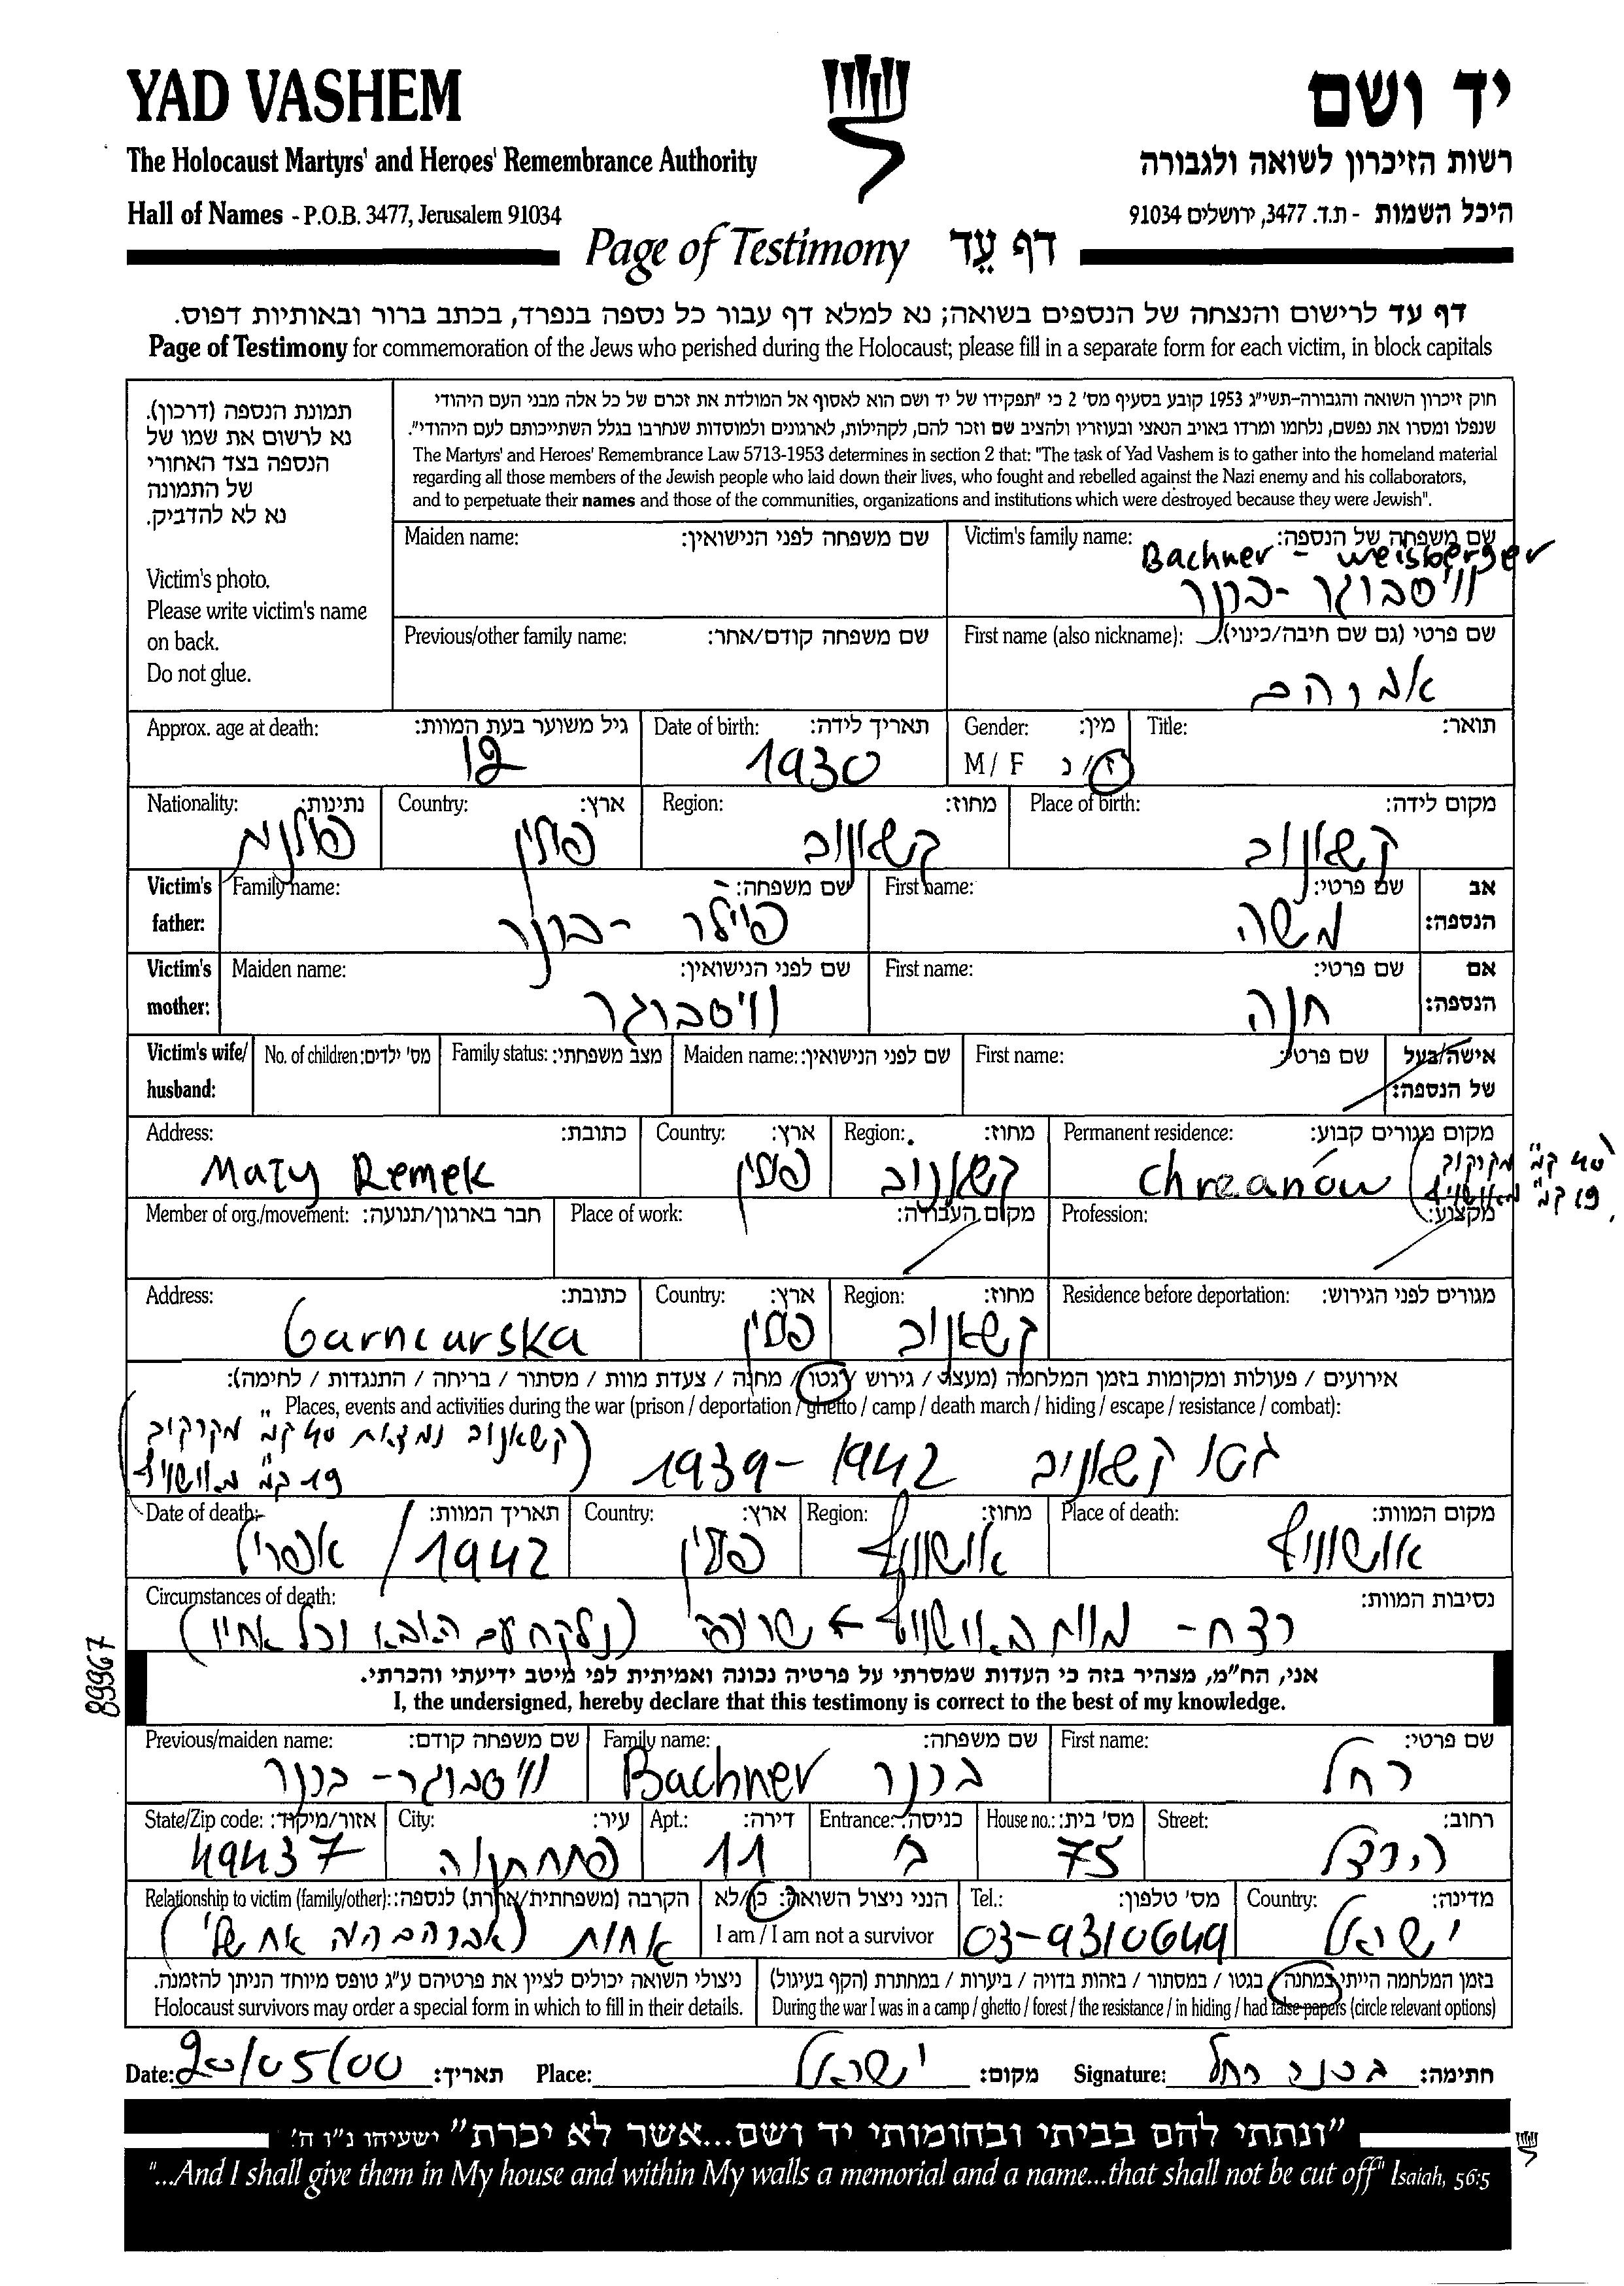 YAD VASHEM
יד ושם
The Holocaust Martyrs' and Heroes' Remembrance Authority
רשות הזיכרון לשואה ולגבורה
Hall of Names - P.O.B. 3477, Jerusalem 91034
היכל השמות - ת.ד. 3477, ירושלים 91034
Page of Testimony דף עֵד
דף עד לרישום והנצחה של הנספים בשואה; נא למלא דף עבור כל נספה בנפרד, בכתב ברור ובאותיות דפוס.
Page of Testimony for commemoration of the Jews who perished during the Holocaust; please fill in a separate form for each victim, in block capitals
תמונת הנספה (דרכון).
נא לרשום את שמו של
הנספה בצד האחורי
של התמונה
נא לא להדביק.
Victim's photo.
Please write victim's name
on back.
Do not glue.
חוק זיכרון השואה והגבורה-תשי"ג 1953 קובע בסעיף מס' 2 כי "תפקידו של יד ושם הוא לאסוף אל המולדת את זכרם של כל אלה מבני העם היהודי
שנפלו ומסרו את נפשם, נלחמו ומרדו באויב הנאצי ובעוזריו ולהציב שם וזכר להם, לקהילות, לארגונים ולמוסדות שנחרבו בגלל השתייכותם לעם היהודי".
The Martyrs' and Heroes' Remembrance Law 5713-1953 determines in section 2 that: "The task of Yad Vashem is to gather into the homeland material
regarding all those members of the Jewish people who laid down their lives, who fought and rebelled against the Nazi enemy and his collaborators,
and to perpetuate their names and those of the communities, organizations and institutions which were destroyed because they were Jewish".
Maiden name: שם משפחה לפני הנישואין:
Victim's family name: שם משפחה של הנספה:
Bachner - Weisberger
וויסבוגר - בכנר
Previous/other family name: שם משפחה קודם/אחר:
First name (also nickname): שם פרטי (גם שם חיבה/כינוי):
אברהם
Approx. age at death: גיל משוער בעת המוות: 12
Date of birth: תאריך לידה: 1930
Gender: מין: M / F ז / נ
Title: תואר:
Nationality: נתינות: פולנית
Country: ארץ: פולין
Region: מחוז: קשאנוב
Place of birth: מקום לידה: קשאנוב
Victim's father: אב הנספה:
Family name: שם משפחה: פוילר - בכנר
First name: שם פרטי: משה
Victim's mother: אם הנספה:
Maiden name: שם לפני הנישואין: וויסבוגר
First name: שם פרטי: חנה
Victim's wife/ husband: אישה/בעל של הנספה:
No. of children: מס' ילדים:
Family status: מצב משפחתי:
Maiden name: שם לפני הנישואין:
First name: שם פרטי:
Address: כתובת: Maty Remek
Country: ארץ: פולין
Region: מחוז: קשאנוב
Permanent residence: מקום מגורים קבוע: Chrzanów
(40 ק"מ מקרקוב
19 ק"מ מאושוויץ
Member of org./movement: חבר בארגון/תנועה:
Place of work: מקום העבודה:
Profession: מקצוע:
Address: כתובת: Garncarska
Country: ארץ: פולין
Region: מחוז: קשאנוב
Residence before deportation: מגורים לפני הגירוש:
אירועים / פעולות ומקומות בזמן המלחמה (מעצר / גירוש / גטו / מחנה / צעדת מוות / מסתור / בריחה / התנגדות / לחימה):
Places, events and activities during the war (prison / deportation / ghetto / camp / death march / hiding / escape / resistance / combat):
גטו קשאנוב 1939-1942
(קשאנוב נמצאת 40 ק"מ מקרקוב
19 ק"מ מאושוויץ)
Date of death: תאריך המוות: אפריל / 1942
Country: ארץ: פולין
Region: מחוז: אושוויץ
Place of death: מקום המוות: אושוויץ
Circumstances of death: נסיבות המוות:
רצח - מוות באושוויץ → שריפה (נלקח עם האבא וכל אחיו)
אני, הח"מ, מצהיר בזה כי העדות שמסרתי על פרטיה נכונה ואמיתית לפי מיטב ידיעתי והכרתי.
I, the undersigned, hereby declare that this testimony is correct to the best of my knowledge.
89967
Previous/maiden name: שם משפחה קודם: וויסבוגר - בכנר
Family name: שם משפחה: בכנר Bachner
First name: שם פרטי: רחל
State/Zip code: אזור/מיקוד: 49437
City: עיר: פתח תקוה
Apt.: דירה: 11
Entrance: כניסה: ב
House no.: מס' בית: 75
Street: רחוב: הרצל
Relationship to victim (family/other): הקרבה (משפחתית/אחרת) לנספה:
אחות (אברהם היה אח שלי)
הנני ניצול השואה: כן/לא
I am / I am not a survivor
Tel.: מס' טלפון: 03-9310649
Country: מדינה: ישראל
ניצולי השואה יכולים לציין את פרטיהם ע"ג טופס מיוחד הניתן להזמנה.
Holocaust survivors may order a special form in which to fill in their details.
בזמן המלחמה הייתי במחנה / בגטו / במסתור / בזהות בדויה / ביערות / במחתרת (הקף בעיגול)
During the war I was in a camp / ghetto / forest / the resistance / in hiding / had false papers (circle relevant options)
Date: 20/05/00 תאריך: Place: ישראל מקום: Signature: בכנר רחל חתימה:
"ונתתי להם בביתי ובחומותי יד ושם...אשר לא יכרת" ישעיהו נ"ו ה'
"...And I shall give them in My house and within My walls a memorial and a name...that shall not be cut off" Isaiah, 56:5